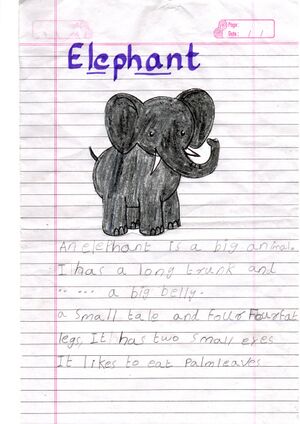 Page:
Date: / /
Elephant
An elephant is a big animal.
I has a long trunk and
.. ... a big belly.
a small tale and four fat
legs, It has two small eyes
It likes to eat Palmleaves